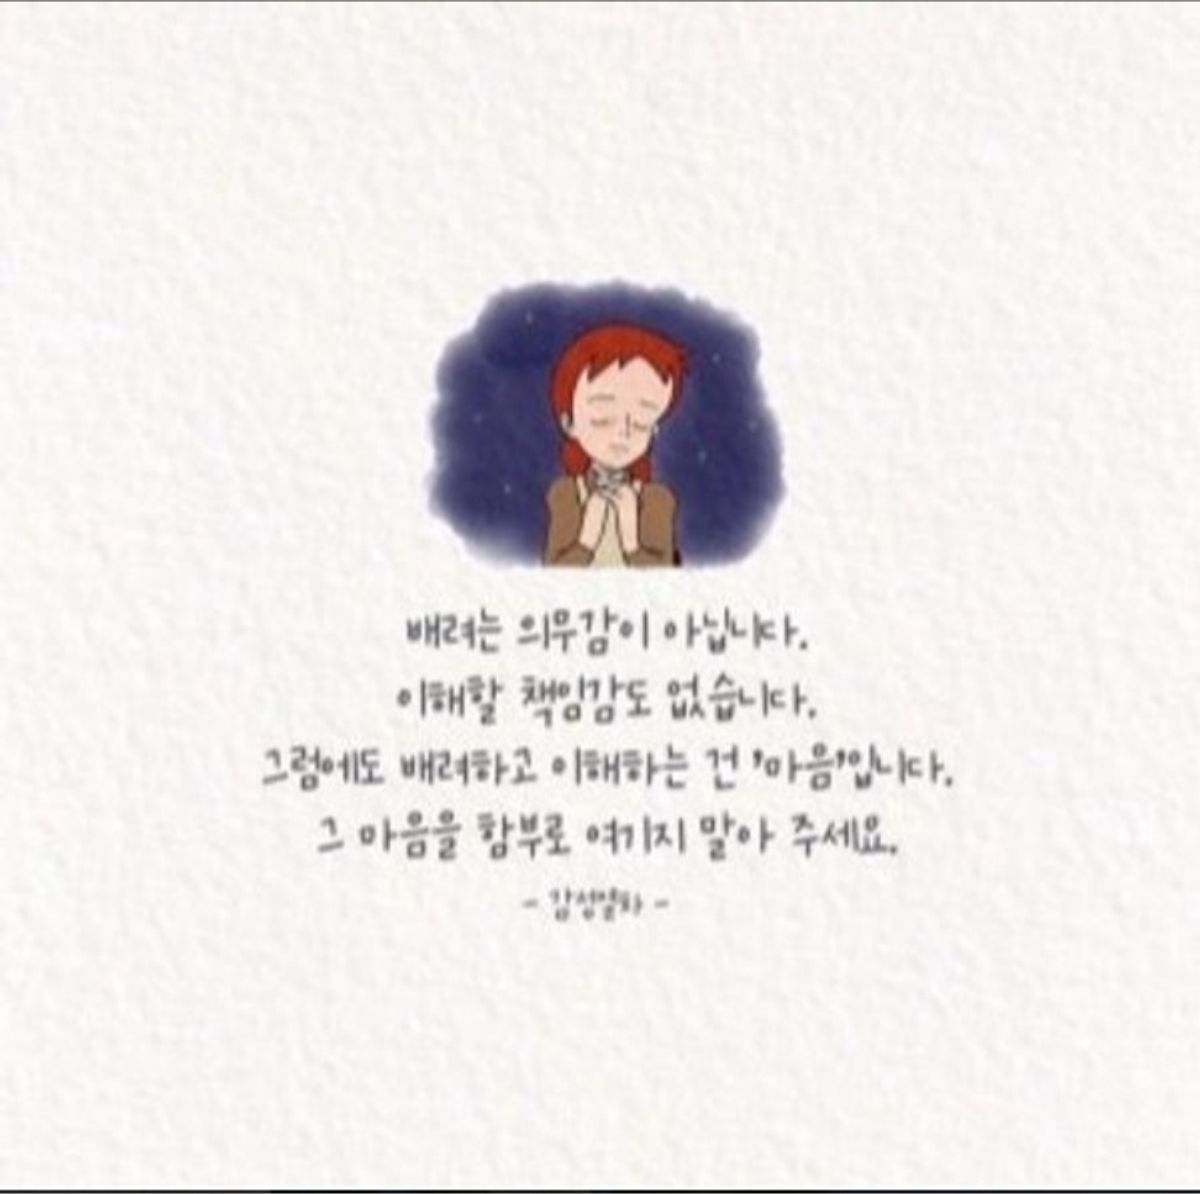 배려는 의무감이 아닙니다.
이해할 책임감도 없습니다.
그럼에도 배려하고 이해하는 건 '마음'입니다.
그 마음을 함부로 여기지 말아 주세요.
- 감성열차 -